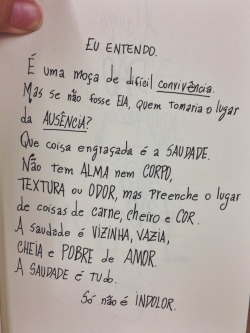 EU ENTENDO.
É uma moça de difícil convivência.
Mas se não fosse ElA, quem tomaria o lugar
da AUSÊNCIA?
Que coisa engraçada é a SAUDADE.
Não tem ALMA nem CORPO,
TEXTURA ou ODOR, mas preenche o lugar
de coisas de carne, cheiro e COR.
A saudade é VIZINHA, VAZIA,
CHEIA e POBRE de AMOR.
A SAUDADE é Tudo.
Só não é INDOLOR.